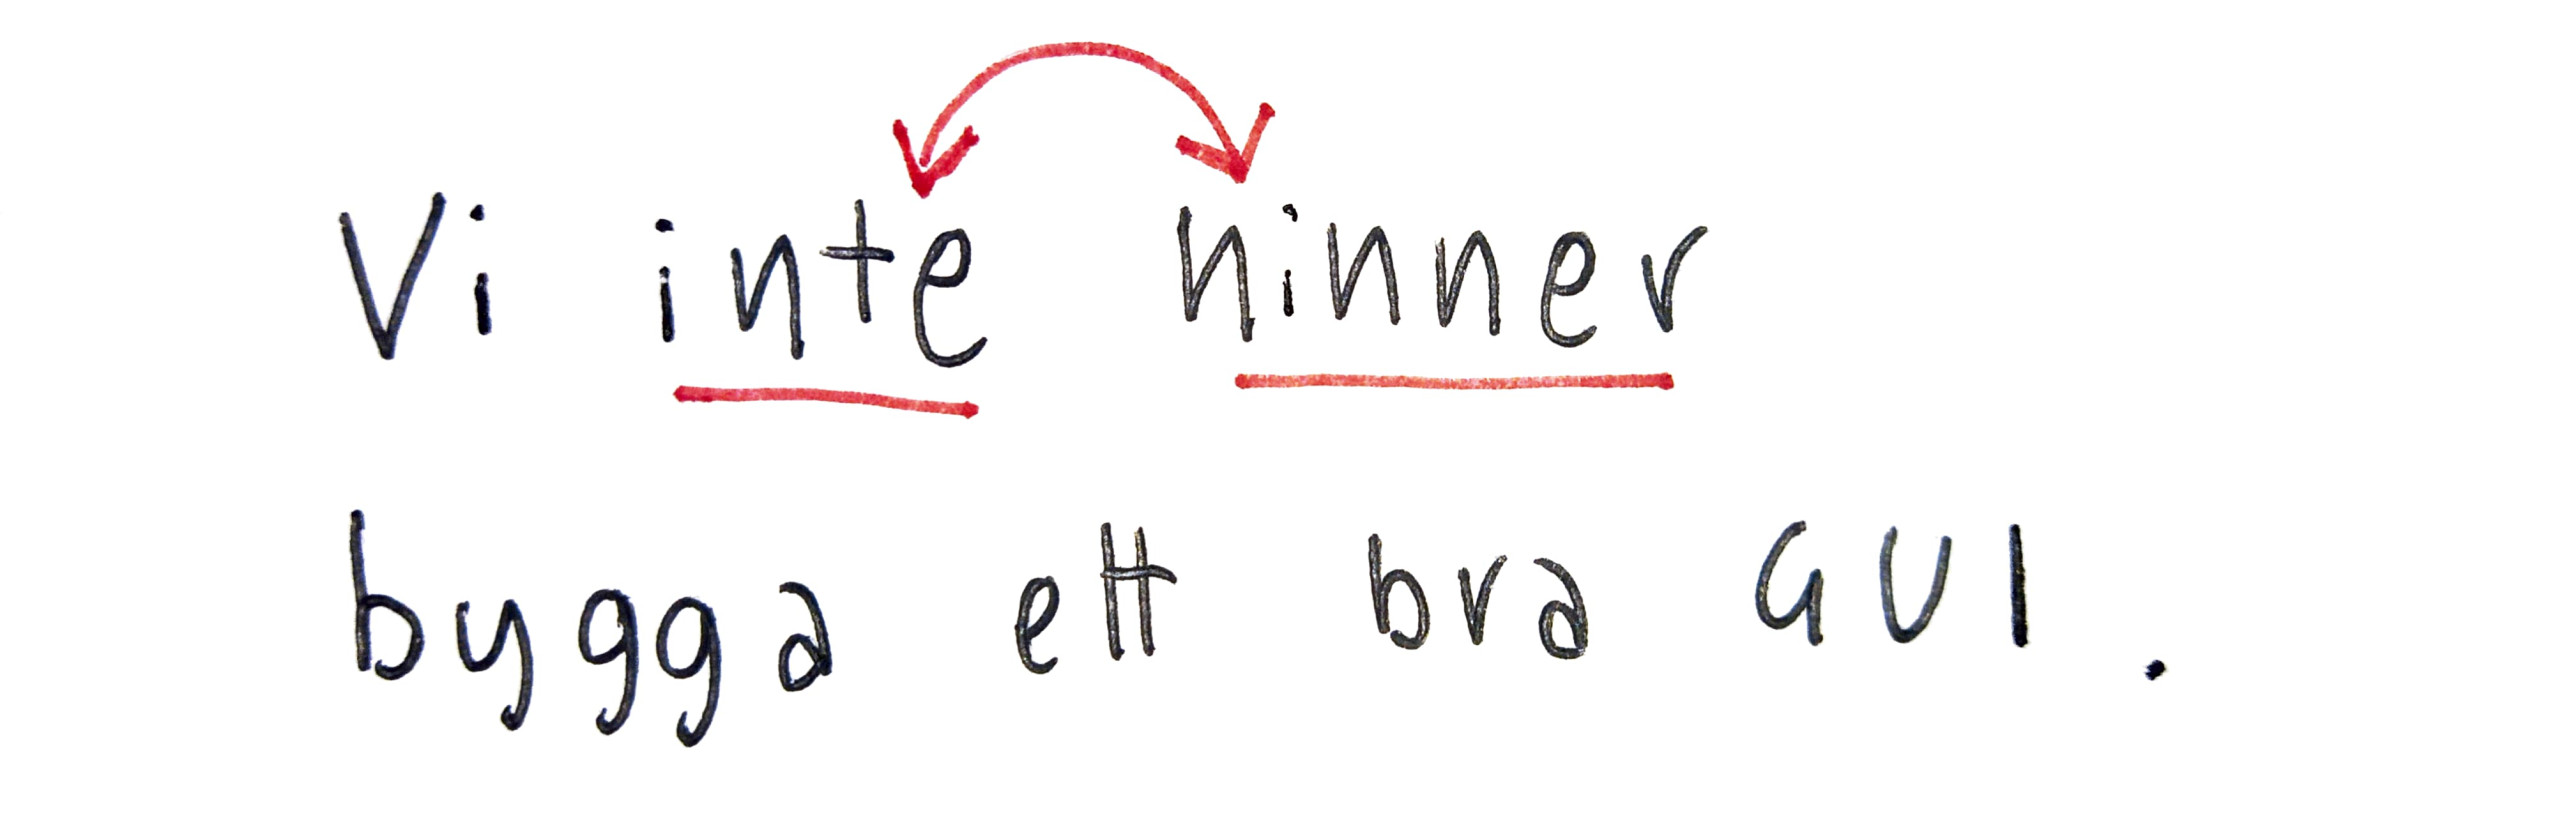 Vi inte hinner
bygga ett bra GUI.